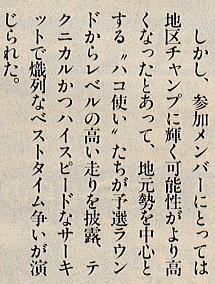 しかし、参加メンバーにとっては
地区チャンプに輝く可能性がより高
くなったとあって、地元勢を中心と
する〝ハコ使い〟たちが予選ラウン
ドからレベルの高い走りを披露、テ
クニカルかつハイスピードなサーキ
ットで熾列なベストタイム争いが演
じられた。